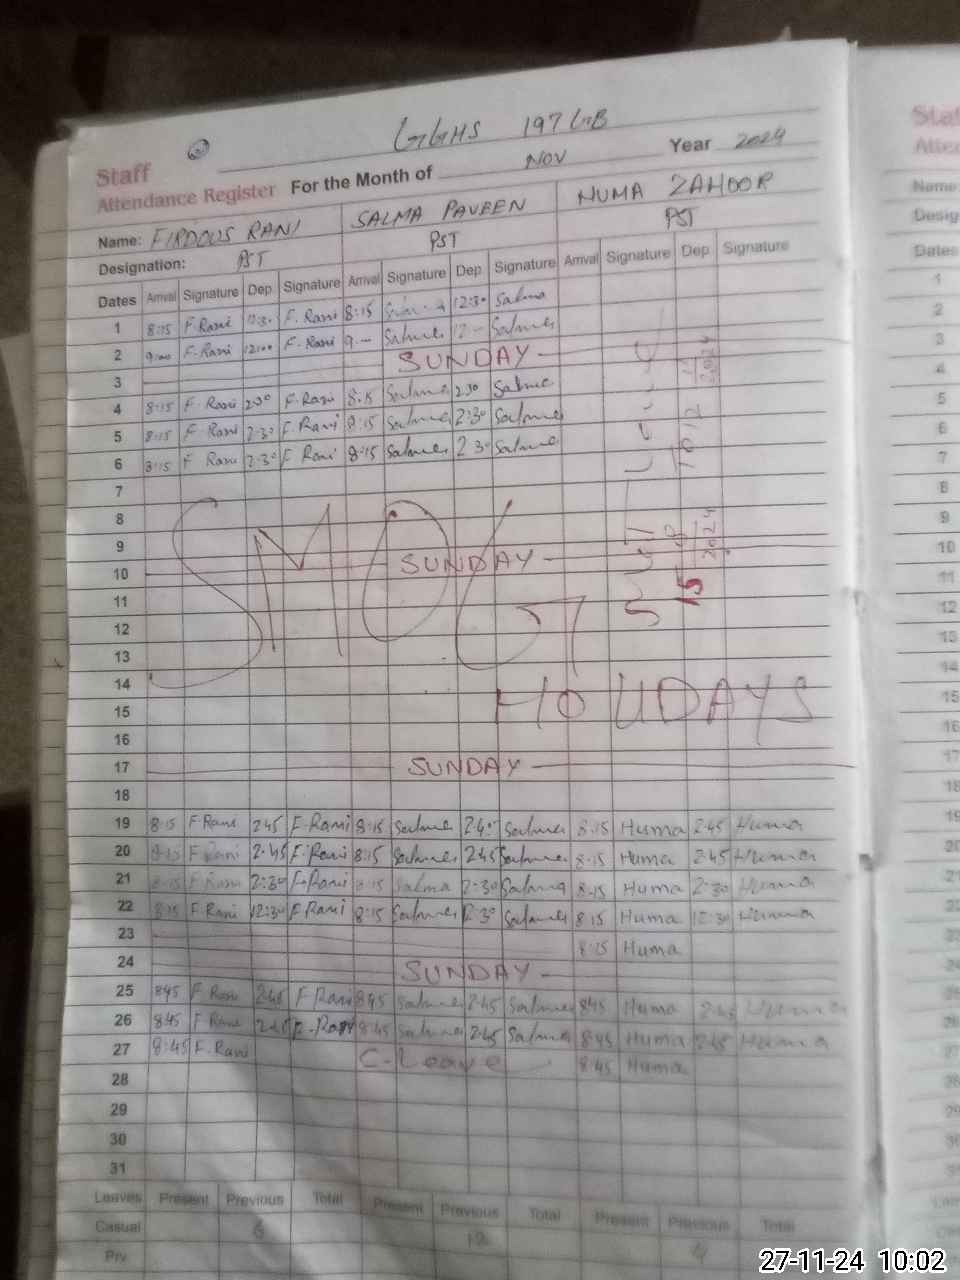 GGHS 197 GB
Staff
Attendance Register For the Month of NOV Year 2024
Name: FIRDOUS RANI SALMA PAVEEN HUMA ZAHOOR
Designation: PST PST PST
Dates Arrival Signature Dep. Signature Arrival Signature Dep Signature Arrival Signature Dep Signature
1 8:15 F.Rani 12:30 F.Rani 8:15 12:30 Salma
2 9:00 F.Rani 12:00 F.Rani 9 Salma 12 Salma
3 SUNDAY
4 8:15 F.Rani 2:30 F.Rani 8:15 Salma 2:30 Salma
5 8:15 F.Rani 2:30 F.Rani 8:15 Salma 2:30 Salma
6 8:15 F Rani 2:30 F Rani 8:15 Salma 2:30 Salma
7
8
9
10 SUNDAY
11
12
13
14
15
16
SMOG
HOLIDAYS
15 2024
2024
17 SUNDAY
18
19 8:15 F.Rani 2:45 F.Rani 8:15 Salma 2:45 Salma 8:15 Huma 2:45 Huma
20 8:15 F Rani 2:45 F.Rani 8:15 Salma 2:45 Salma 8:15 Huma 2:45 Huma
21 8:15 F Rani 2:30 F.Rani 8:15 Salma 2:30 Salma 8:15 Huma 2:30 Huma
22 8:15 F.Rani 12:30 F Rani 8:15 Salma 12:30 Salma 8:15 Huma 12:30 Huma
23 8:15 Huma
24 SUNDAY
25 8:45 F Rani 2:45 F Rani 8:45 Salma 2:45 Salma 8:45 Huma 2:45 Huma
26 8:45 F Rani 2:45 F.Rani 8:45 Salma 2:45 Salma 8:45 Huma 2:45 Huma
27 8:45 F.Rani C-Leave 8:45 Huma
28
29
30
31
Leaves Present Previous Total Present Previous Total Present Previous Total
Casual 6 4
Prv
Dates
1
2
3
4
5
6
7
8
9
10
11
12
13
14
15
16
17
18
19
27-11-24 10:02